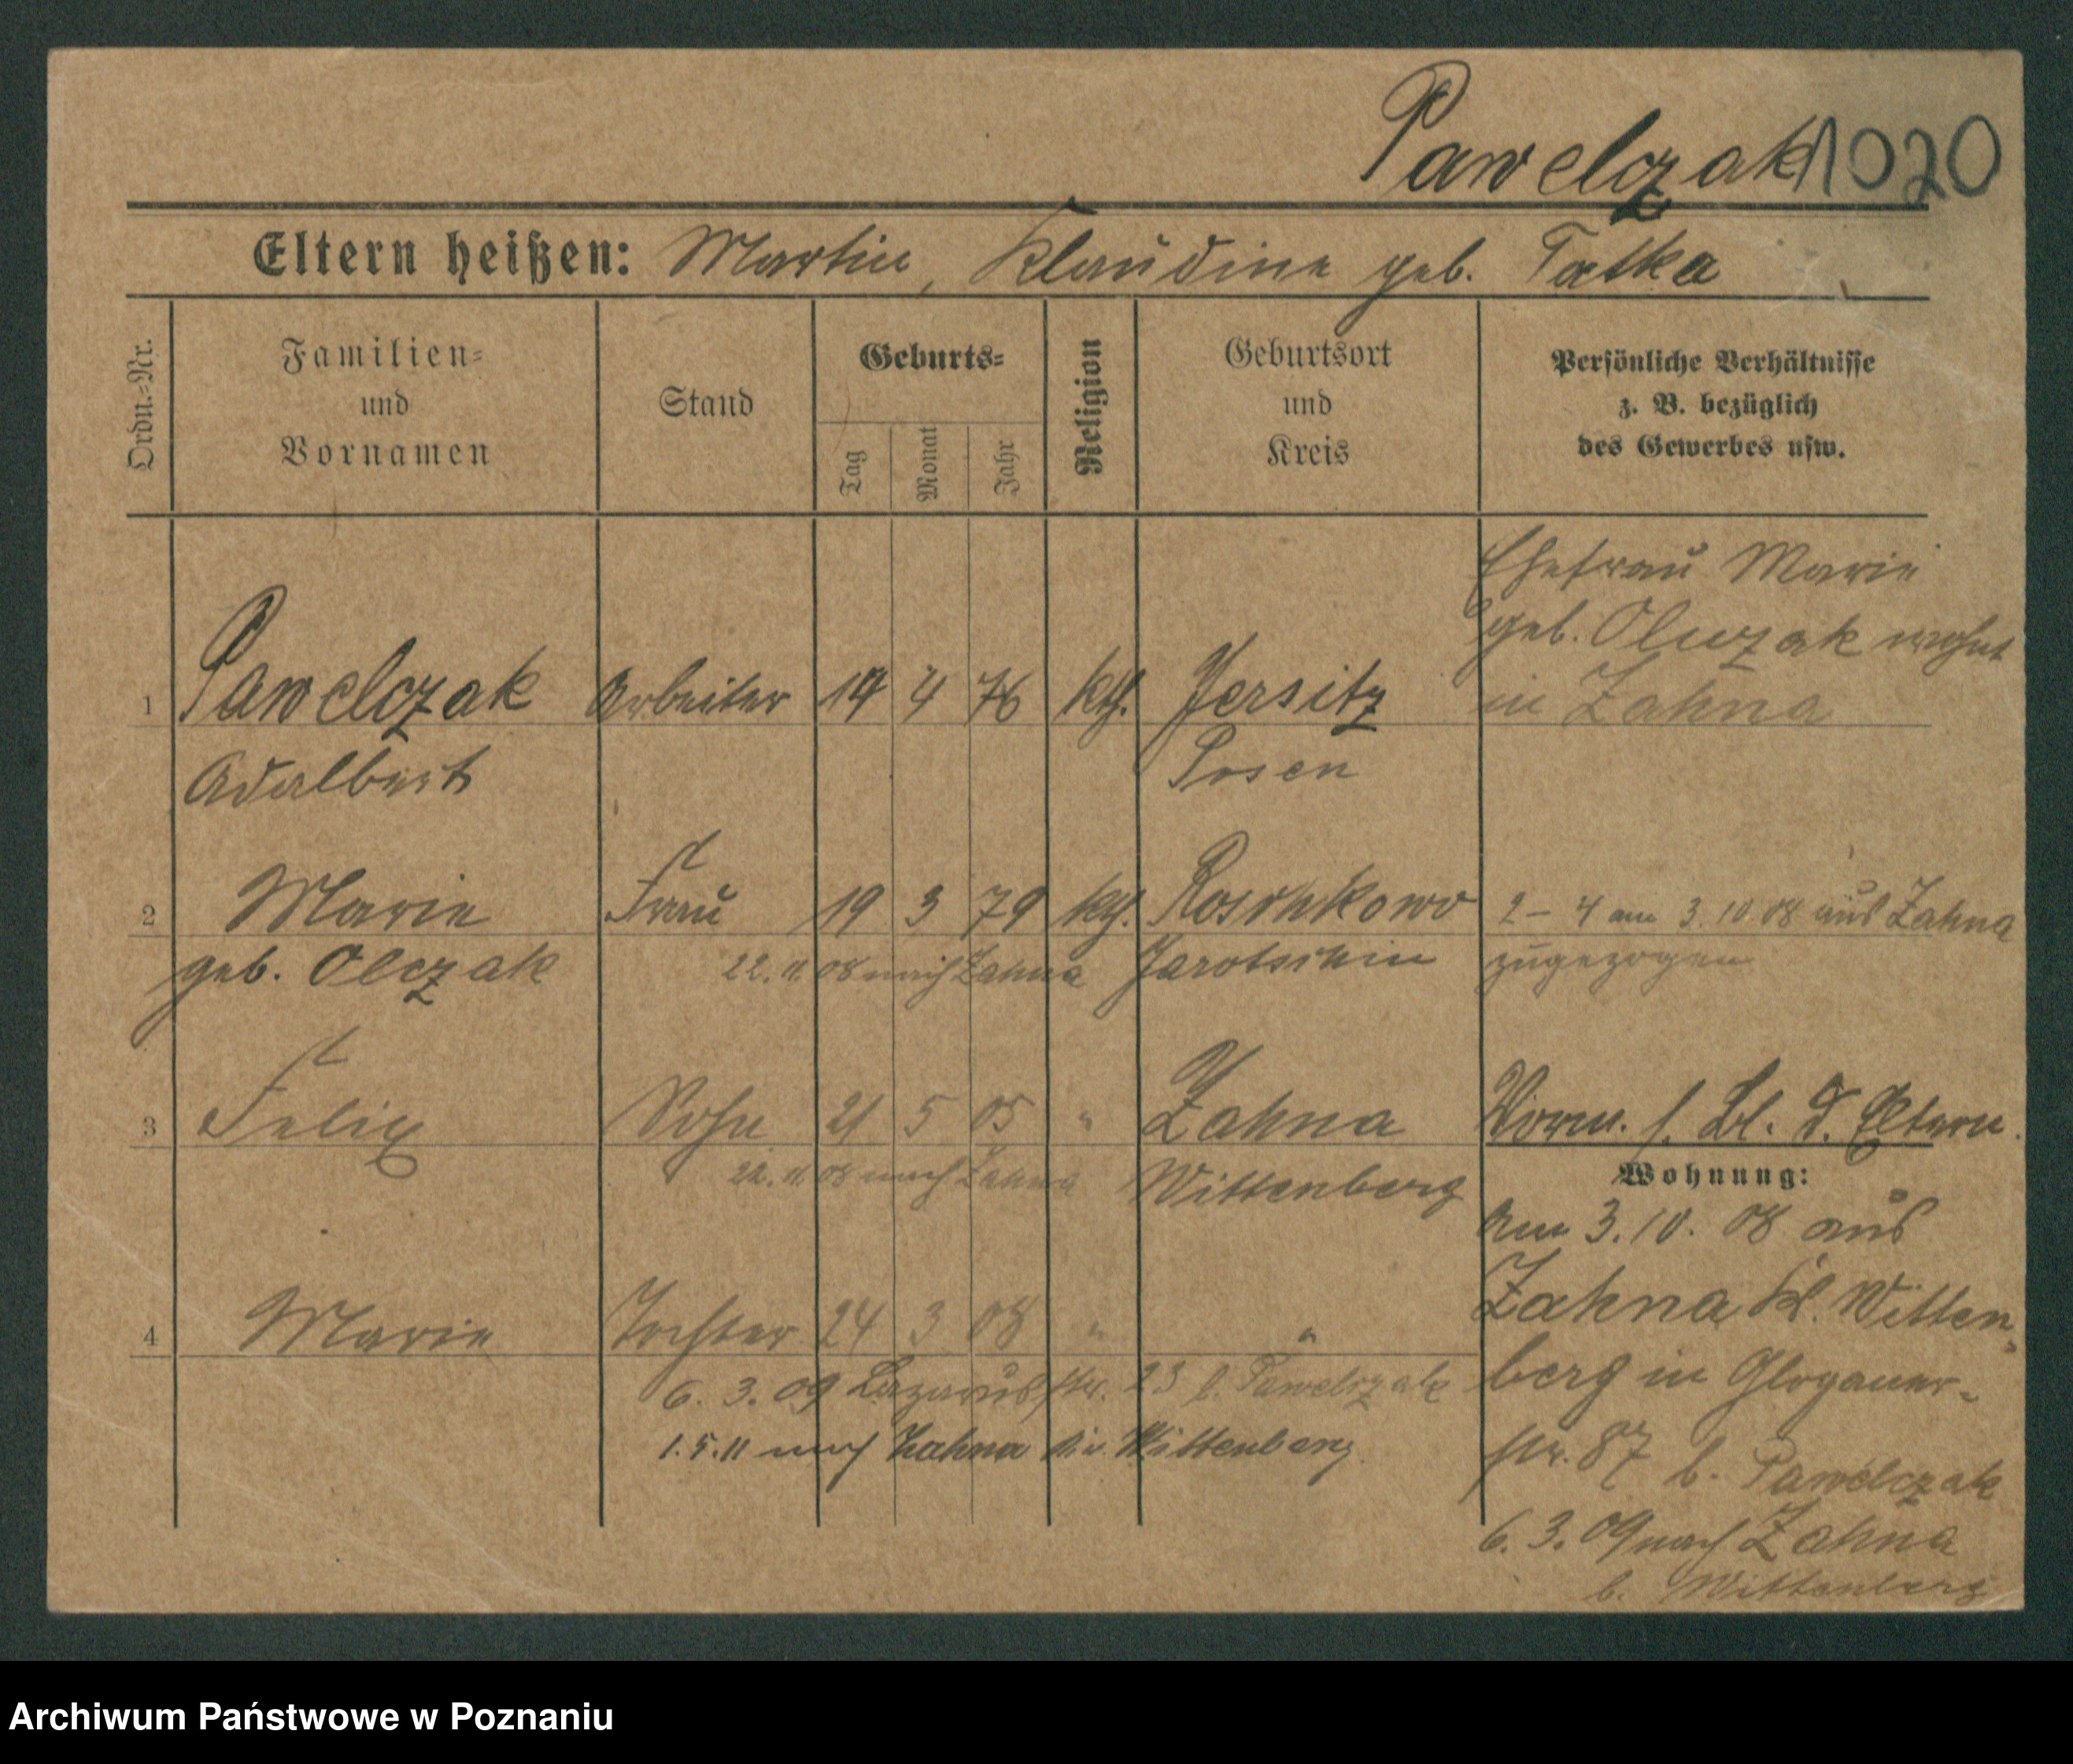 Pawelczak 1020
Eltern heißen: Martin, Klaudine geb. Tatka
Ordn.-Nr.
Familien-
und
Vornamen
Stand
Geburts-
Tag
Monat
Jahr
Religion
Geburtsort
und
Kreis
Persönliche Verhältnisse
z. B. bezüglich
des Gewerbes usw.
Ehefrau Marie
geb. Olczak wohnt
in Zahna
1 Pawelczak Arbeiter 14 4 76 kth. Jersitz
Adalbert Posen
2 Marie Frau 19 3 79 kth. Roschkowo 2-4 am 3.10.08 aus Zahna
geb. Olczak 22.11.08 nach Zahna Jarotschin zugezogen
3 Felix Sohn 21 5 05 " Zahna Vorm. s. Bl. d. Eltern.
22.11.08 nach Zahna Wittenberg
Wohnung:
Am 3.10.08 aus
Zahna Kr. Witten-
berg in Glogauer-
str. 87 b. Pawelczak
6.3.09 nach Zahna
b. Wittenberg
4 Marie Tochter 24 3 08 " "
6.3.09 Lazarusstr. 23 b. Pawelczak
1.5.11 nach Zahna Wittenberg
Archiwum Państwowe w Poznaniu